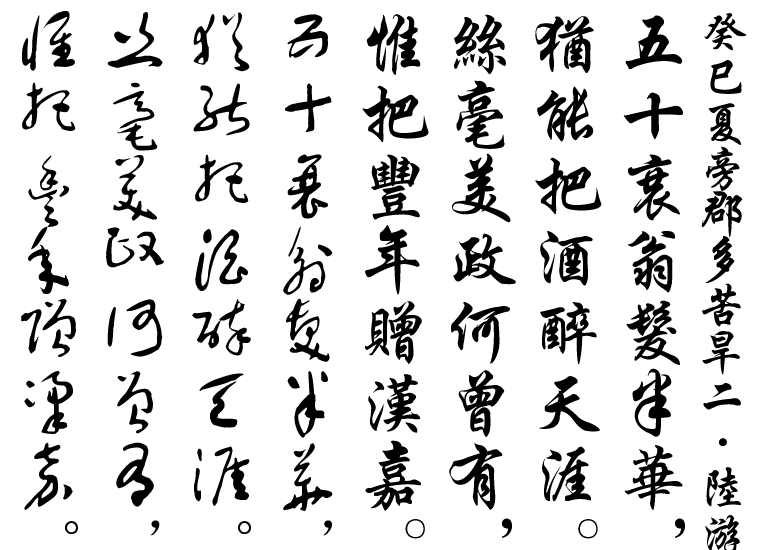 癸巳夏旁郡多苦旱二·陸游
五十衰翁髮半華，
猶能把酒醉天涯。
絲毫美政何曾有，
惟把豐年贈漢嘉。
五十衰翁髮半華，
猶能把酒醉天涯。
絲毫美政何曾有，
惟把豐年贈漢嘉。